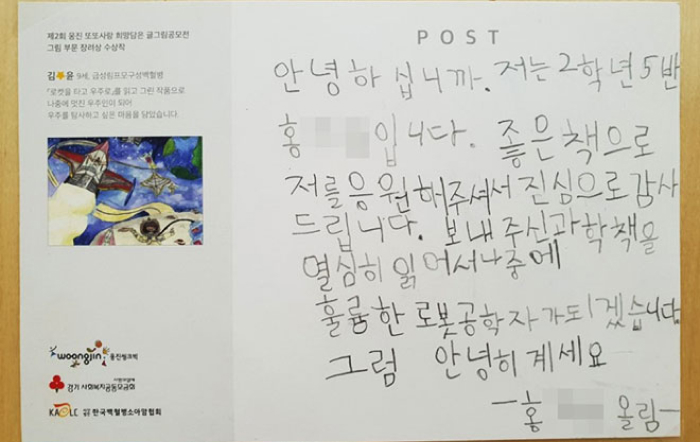 제2회 웅진 또또사랑 희망담은 글그림공모전
그림 부문 장려상 수상작
김 윤 9세, 급성림프모구성백혈병
「로켓을 타고 우주로」를 읽고 그린 작품으로
나중에 멋진 우주인이 되어
우주를 탐사하고 싶은 마음을 담았습니다.
woongjin 웅진씽크빅
사랑의열매
경기 사회복지공동모금회
KACLC 한국백혈병소아암협회
POST
안녕하십니까. 저는 2학년 5반
홍 입니다. 좋은 책으로
저를 응원해주셔서 진심으로 감사
드립니다. 보내주신 과학책을
열심히 읽어서 나중에
훌륭한 로봇공학자가 되겠습니다
그럼 안녕히 계세요
-홍 올림-